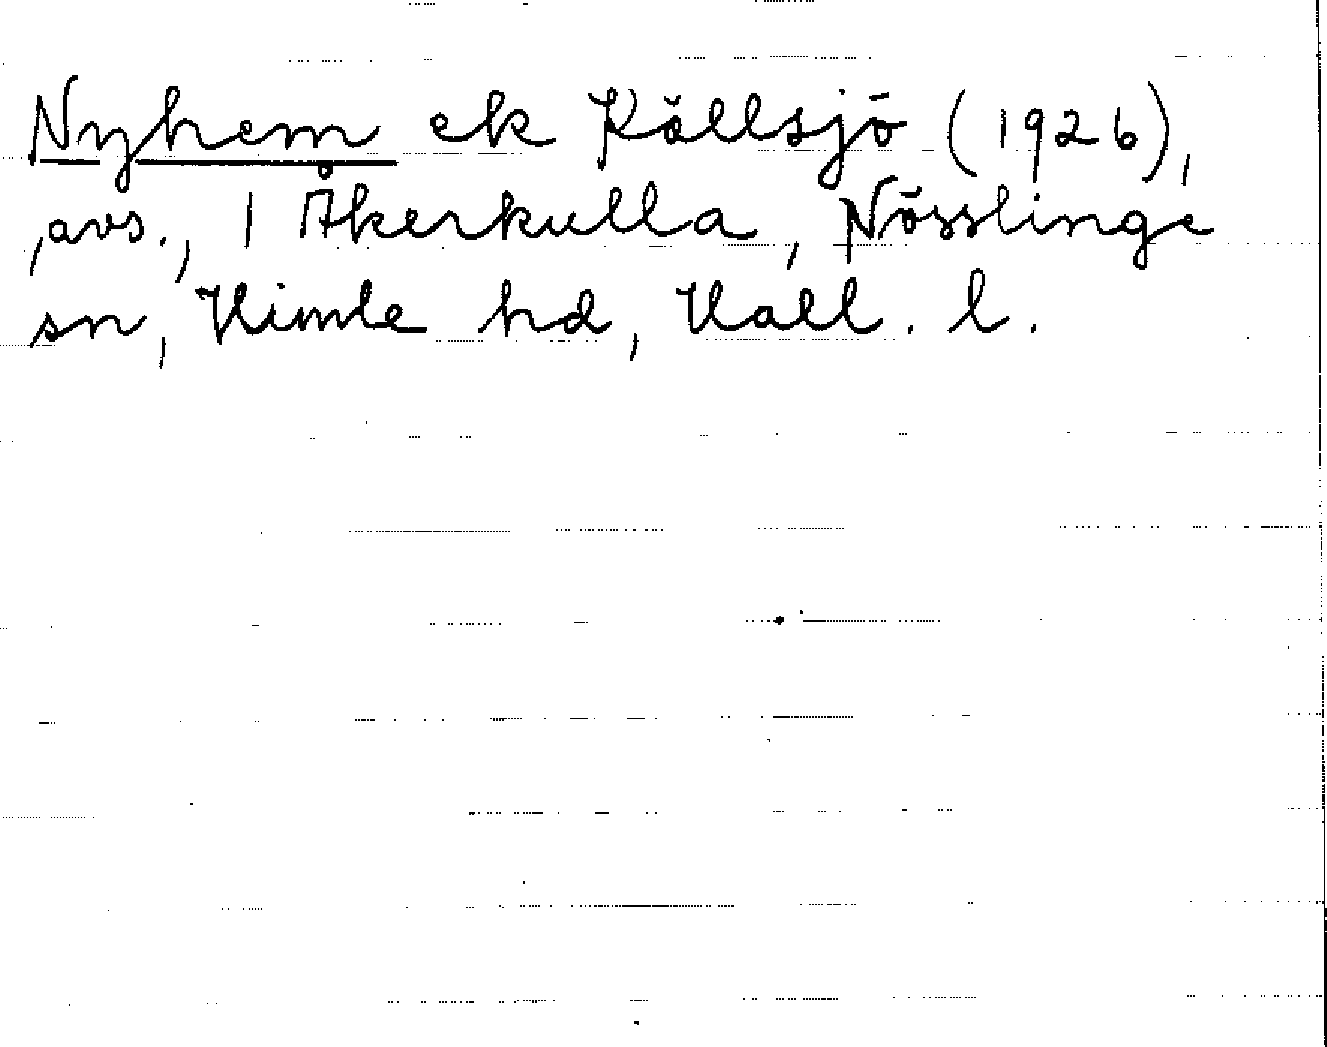 Nyhem ek Källsjö (1926),
avs., 1 Åkerkulla, Nösslinge
sn, Himle hd, Hall. l.